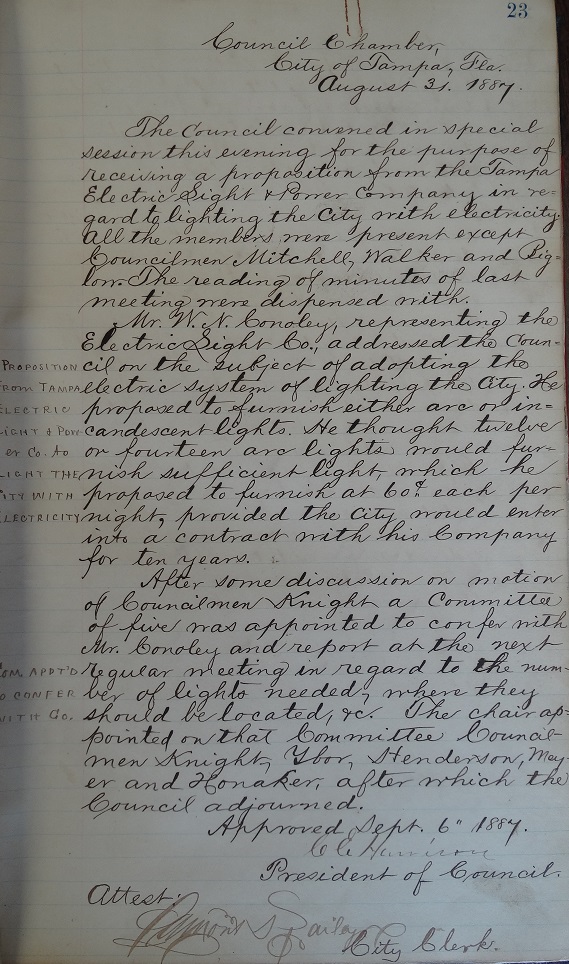 23
Council Chamber,
City of Tampa, Fla.
August 31. 1887.
The Council convened in special
session this evening for the purpose of
receiving a proposition from the Tampa
Electric Light & Power Company in re-
gard to lighting the City with electricity.
All the members were present except
Councilmen Mitchell, Walker and Big-
low. The reading of minutes of last
meeting were dispensed with.
Mr. W. N. Conoley, representing the
Electric Light Co., addressed the Coun-
cil on the subject of adopting the
electric system of lighting the City. He
proposed to furnish either arc or in-
candescent lights. He thought twelve
or fourteen arc lights would fur-
nish sufficient light, which he
proposed to furnish at 60¢ each per
night, provided the City would enter
into a contract with his Company
for ten years.
PROPOSITION
FROM TAMPA
ELECTRIC
LIGHT & POW-
er Co. to
LIGHT THE
CITY WITH
ELECTRICITY
After some discussion on motion
of Councilmen Knight a Committee
of five was appointed to confer with
Mr. Conoley and report at the next
regular meeting in regard to the num-
ber of lights needed, where they
should be located, &c. The chair ap-
pointed on that Committee Council-
men Knight, Ybor, Henderson, Mey-
er and Honaker, after which the
Council adjourned.
COM. APPT'D
TO CONFER
WITH CO.
Approved Sept. 6" 1887.
President of Council.
Attest:
City Clerk.